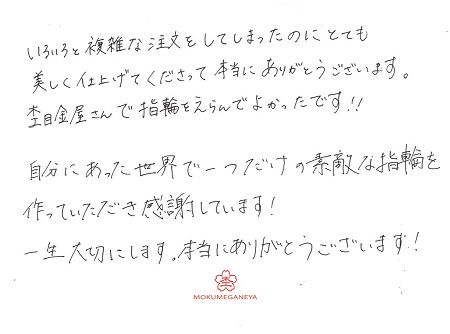 いろいろと複雑な注文をしてしまったのにとても
美しく仕上げてくださって本当にありがとうございます。
杢目金屋さんで指輪をえらんでよかったです!!
自分にあった世界で一つだけの素敵な指輪を
作っていただき感謝しています!
一生大切にします。本当にありがとうございます!
MOKUMEGANEYA